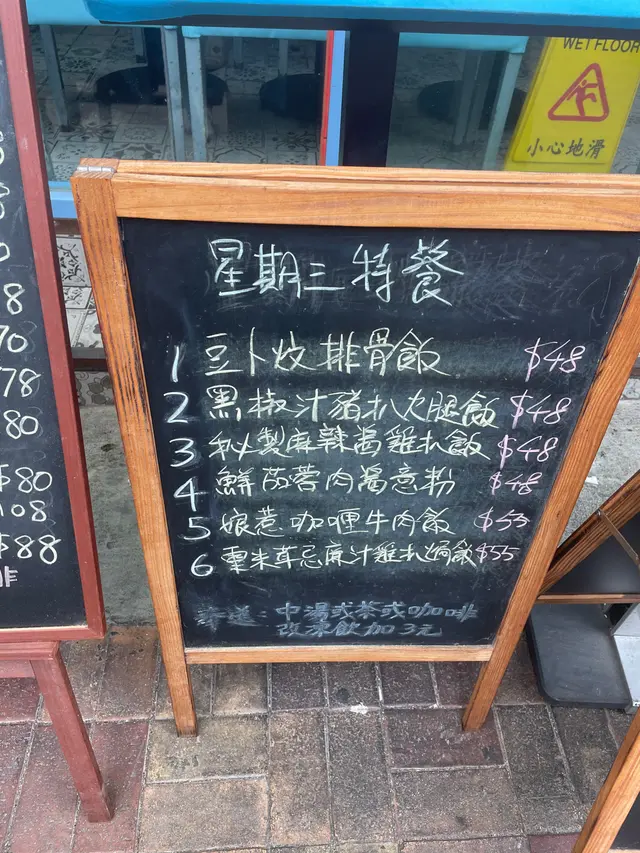 WET FLOOR
小心地滑
星期三特餐
1 豆卜炆排骨飯 $48
2 黑椒汁豬扒火腿飯 $48
3 秘製麻辣醬雞扒飯 $48
4 鮮茄蓉肉醬意粉 $48
5 娘惹咖喱牛肉飯
6 粟米忌廉汁雞扒焗飯 $55
送：中湯或茶或咖啡
改凍飲加3元
8
70
78
80
$80
108
$88
啡